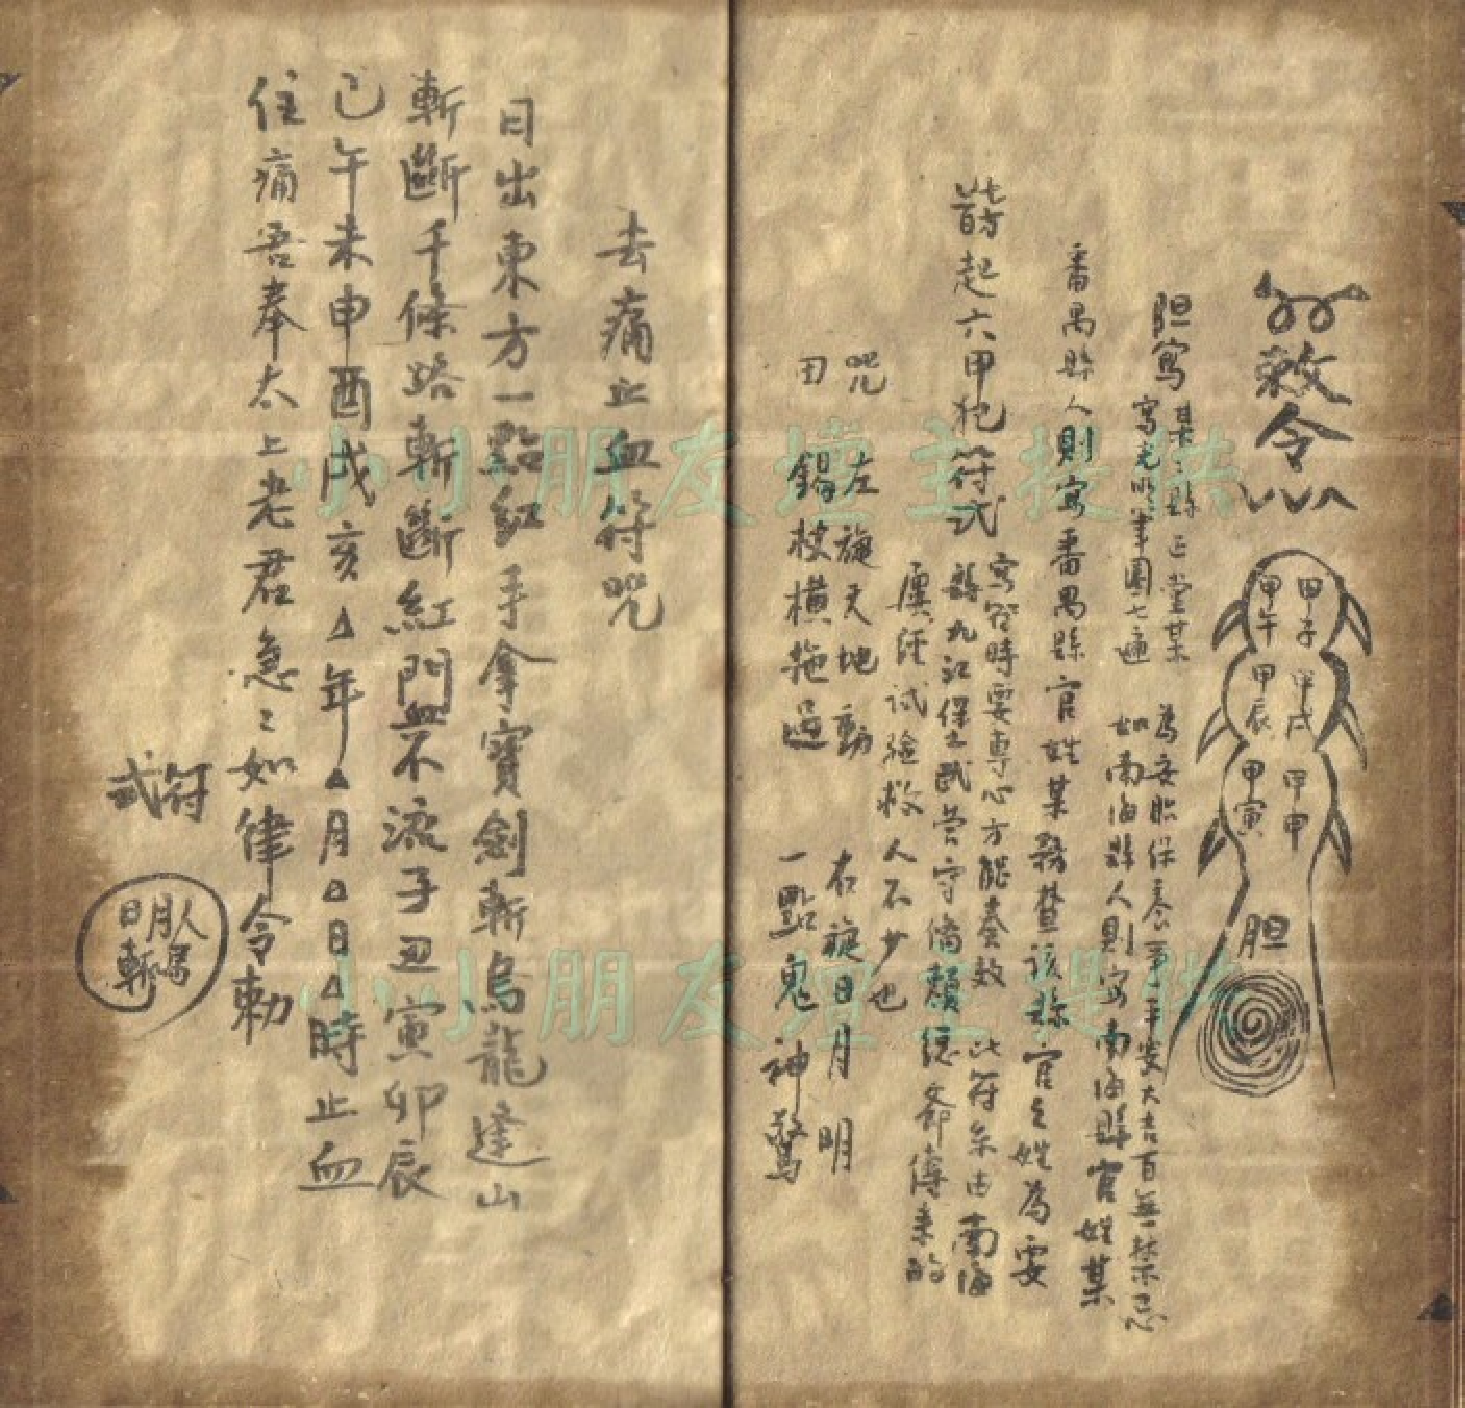 敕令
甲子
甲午
甲戌
甲辰
甲申
甲寅
胆
胆寫
某々縣正堂某
為安胎保養平平安大吉百無禁忌
寫完順筆圈七遍
如南海縣人則寫南海縣官姓某
番禺縣人則寫番禺縣官姓某務查該縣官之姓為要
起六甲犯符式
寫符時要專心方能奏效
此符乐由南海
九江保安武营守備賴德爺傳來的
屢經試驗救人不少也
咒
左旋天地動
右旋日月明
田
錫杖橫拖過
一點鬼神驚
去痛止血符咒
日出東方一點紅手拿寶劍斬烏龍逢山
斬斷千條路斬斷紅門血不流子丑寅卯辰
已午未申酉戌亥△年△月△日△時止血
住痛吾奉太上老君急々如律令勅
符式
人
月
日
斬
小小朋友壇主提供
小小朋友壇主提供